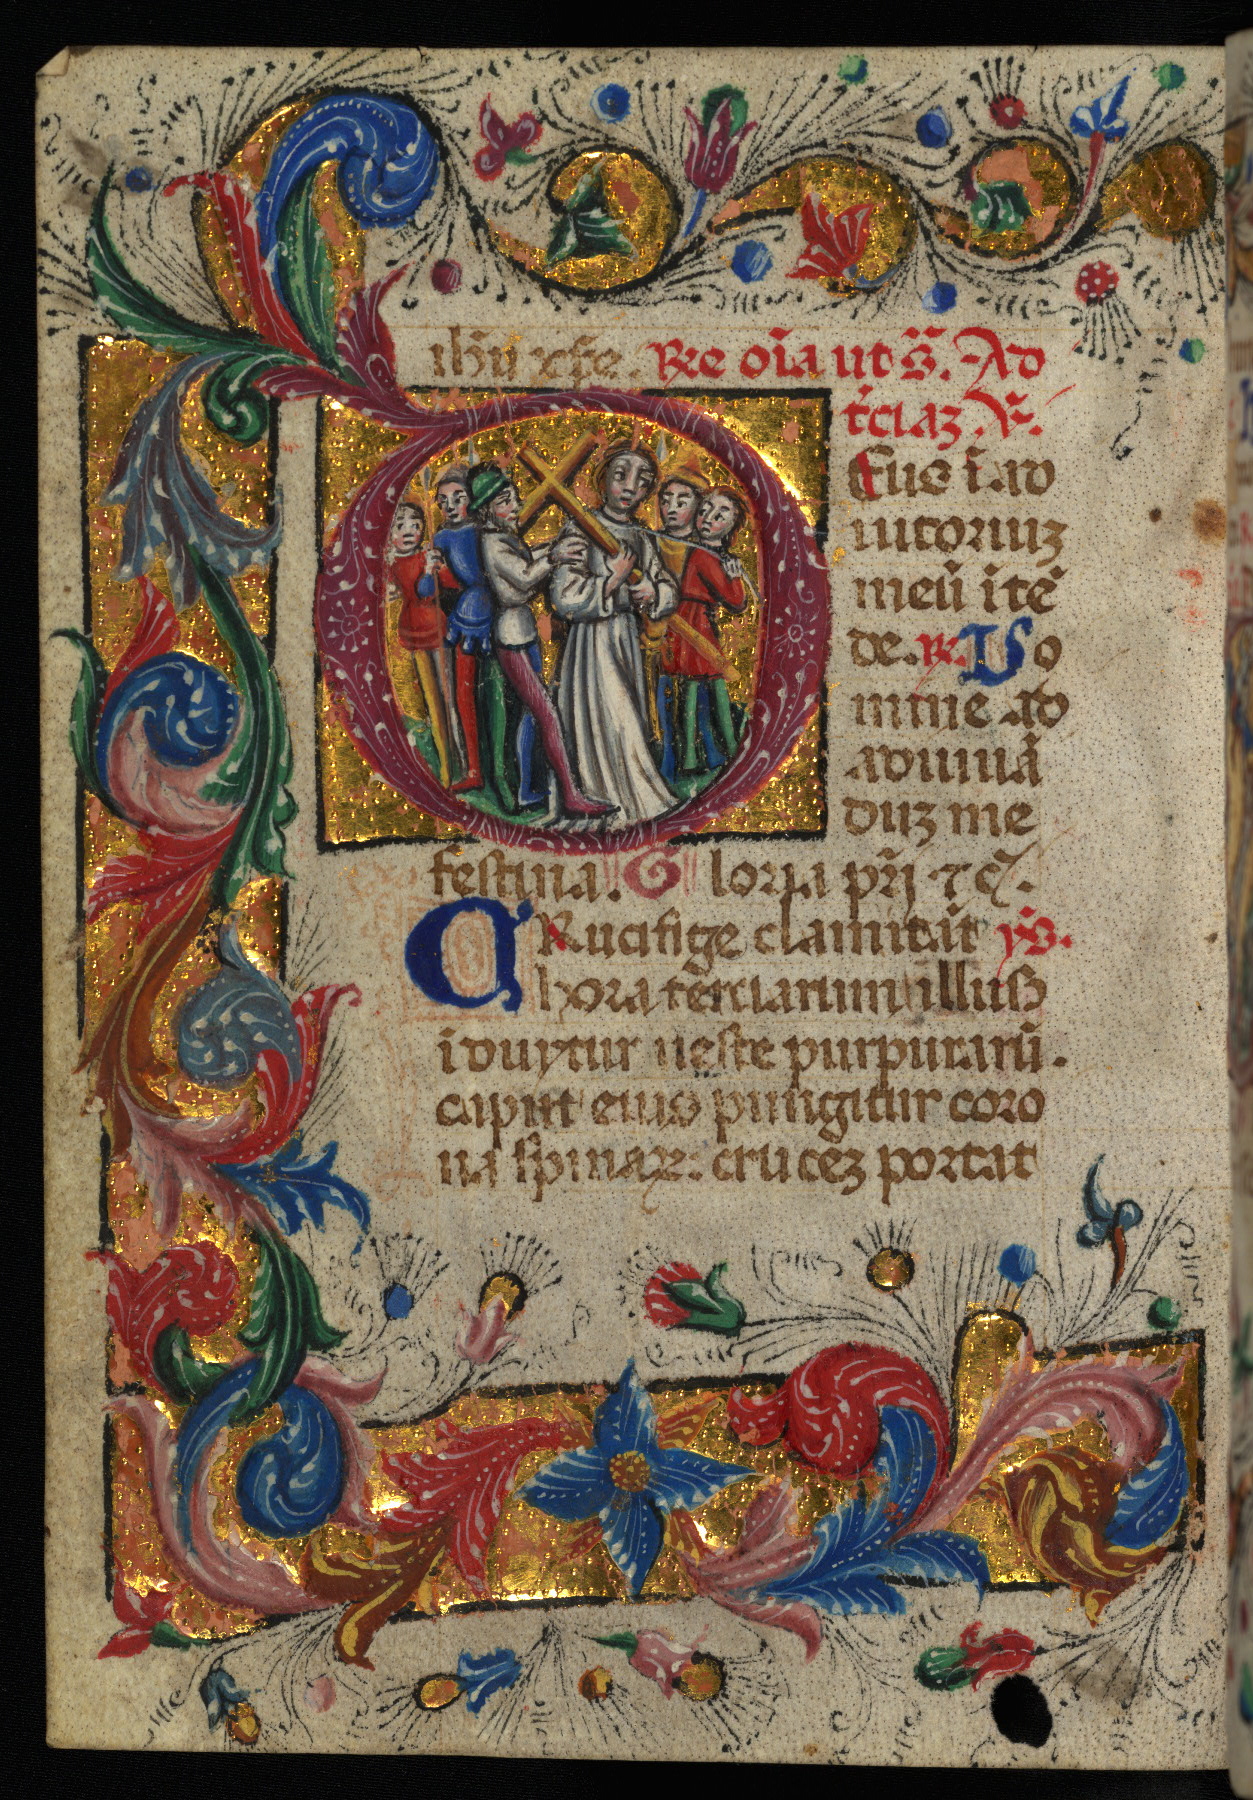 ihũ xp̃e. Re oĩa ut s̃. Ad
t̃ciaz. V̓.
Eus ĩ ad
iutoriuz
meũ ĩtẽ
de. R̓. Do
mine ad
adiuuã
duz me
festina. Gloria pr̃i ⁊ c̃.
CRucifige clamitãt ẏs.
hora terciarum illus
iduytur ueste purpurarũ.
caput eius pungitur coro
na spinaꝝ: crucez portat